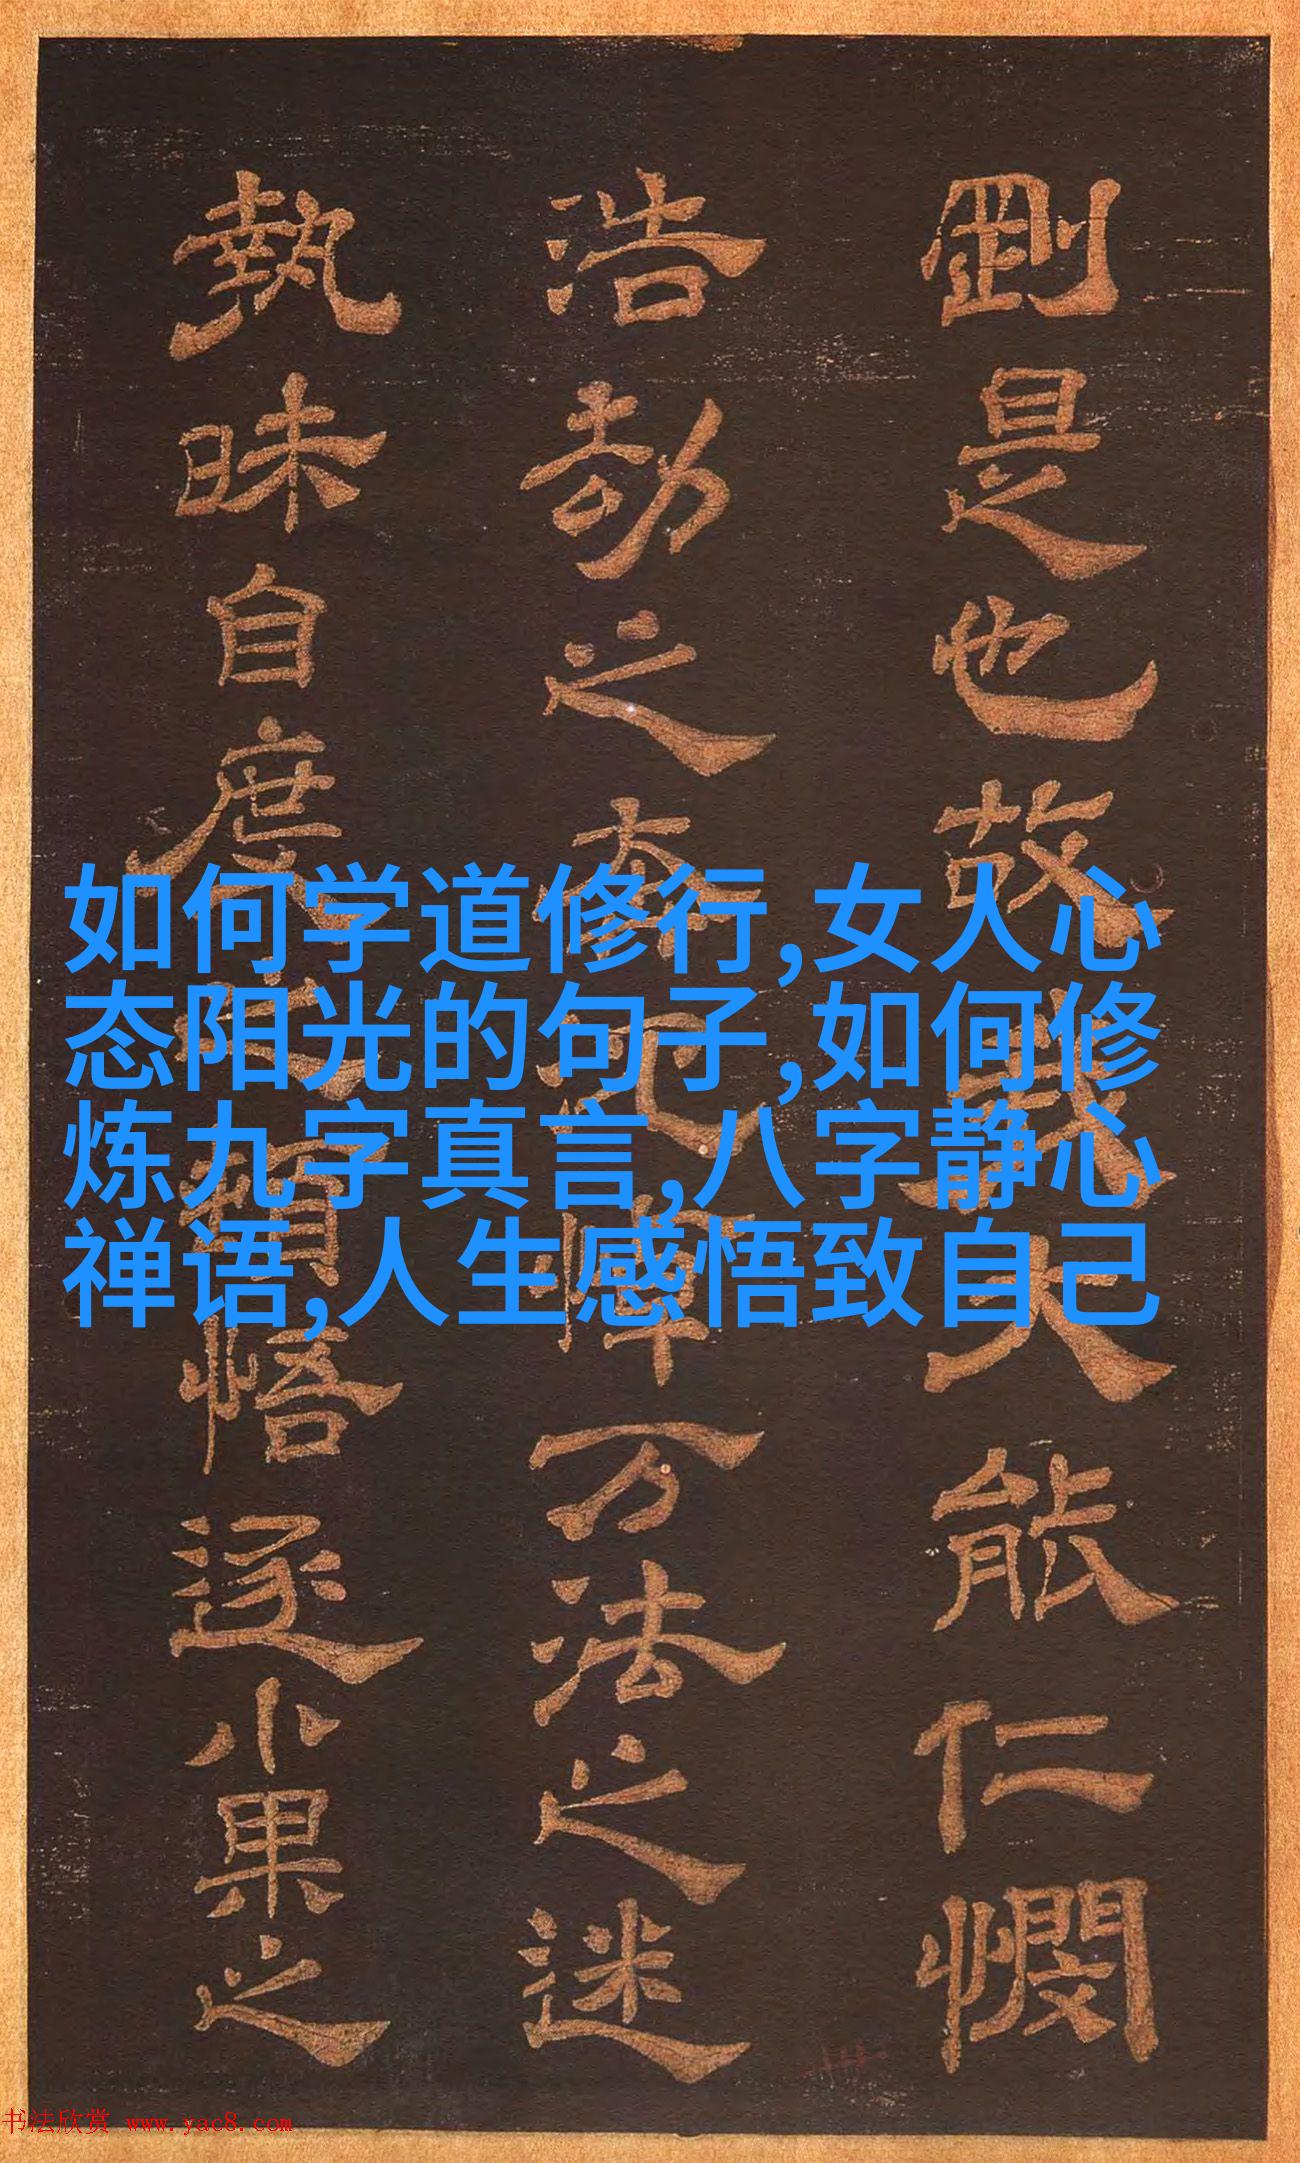 剛是也故我大能仁憫
浩劫之夲元悼万法之迷
執昧自度
悟逐小果之
如何学道修行,女人心
态阳光的句子,如何修
炼九字真言,八字静心
禅语,人生感悟致自己
书法欣赏 www.yac8.com